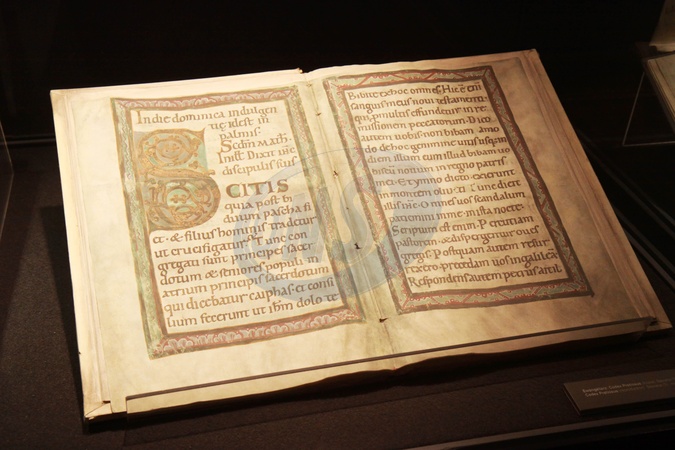 In die dominica indulgen
tie id est in
palmis.
Scdm Math.
In illt Dixit ihc
discipulis suis
SCITIS
quia post bi
duum pascha fi
et & filius hominis tradetur
ut crucifigatur Tunc con
gregati sunt principes sacer
dotum & seniores populi in
atrium principis sacerdotum
qui dicebatur caiphas et consi
lium fecerunt ut ihm dolo te
Bibite ex hoc omnes Hic e eni
sanguis meus novi testamenti
qui multis effunditur in re
missionem peccatorum Dico
autem vobis non bibam amo
do de hoc genimine vitis usq in
diem illum cum illud bibam vo
biscu novum in regno patris
mei Et ymno dicto exierunt
in montem Tunc dicit
illis ihc Omnes vos scandalum
patiemini in me in ista nocte
Scriptum est enim Percutiam
pastorem & dispergentur oves
gregis Postquam autem resur
rexero precedam vos in galilea
Respondens autem petrus ait il